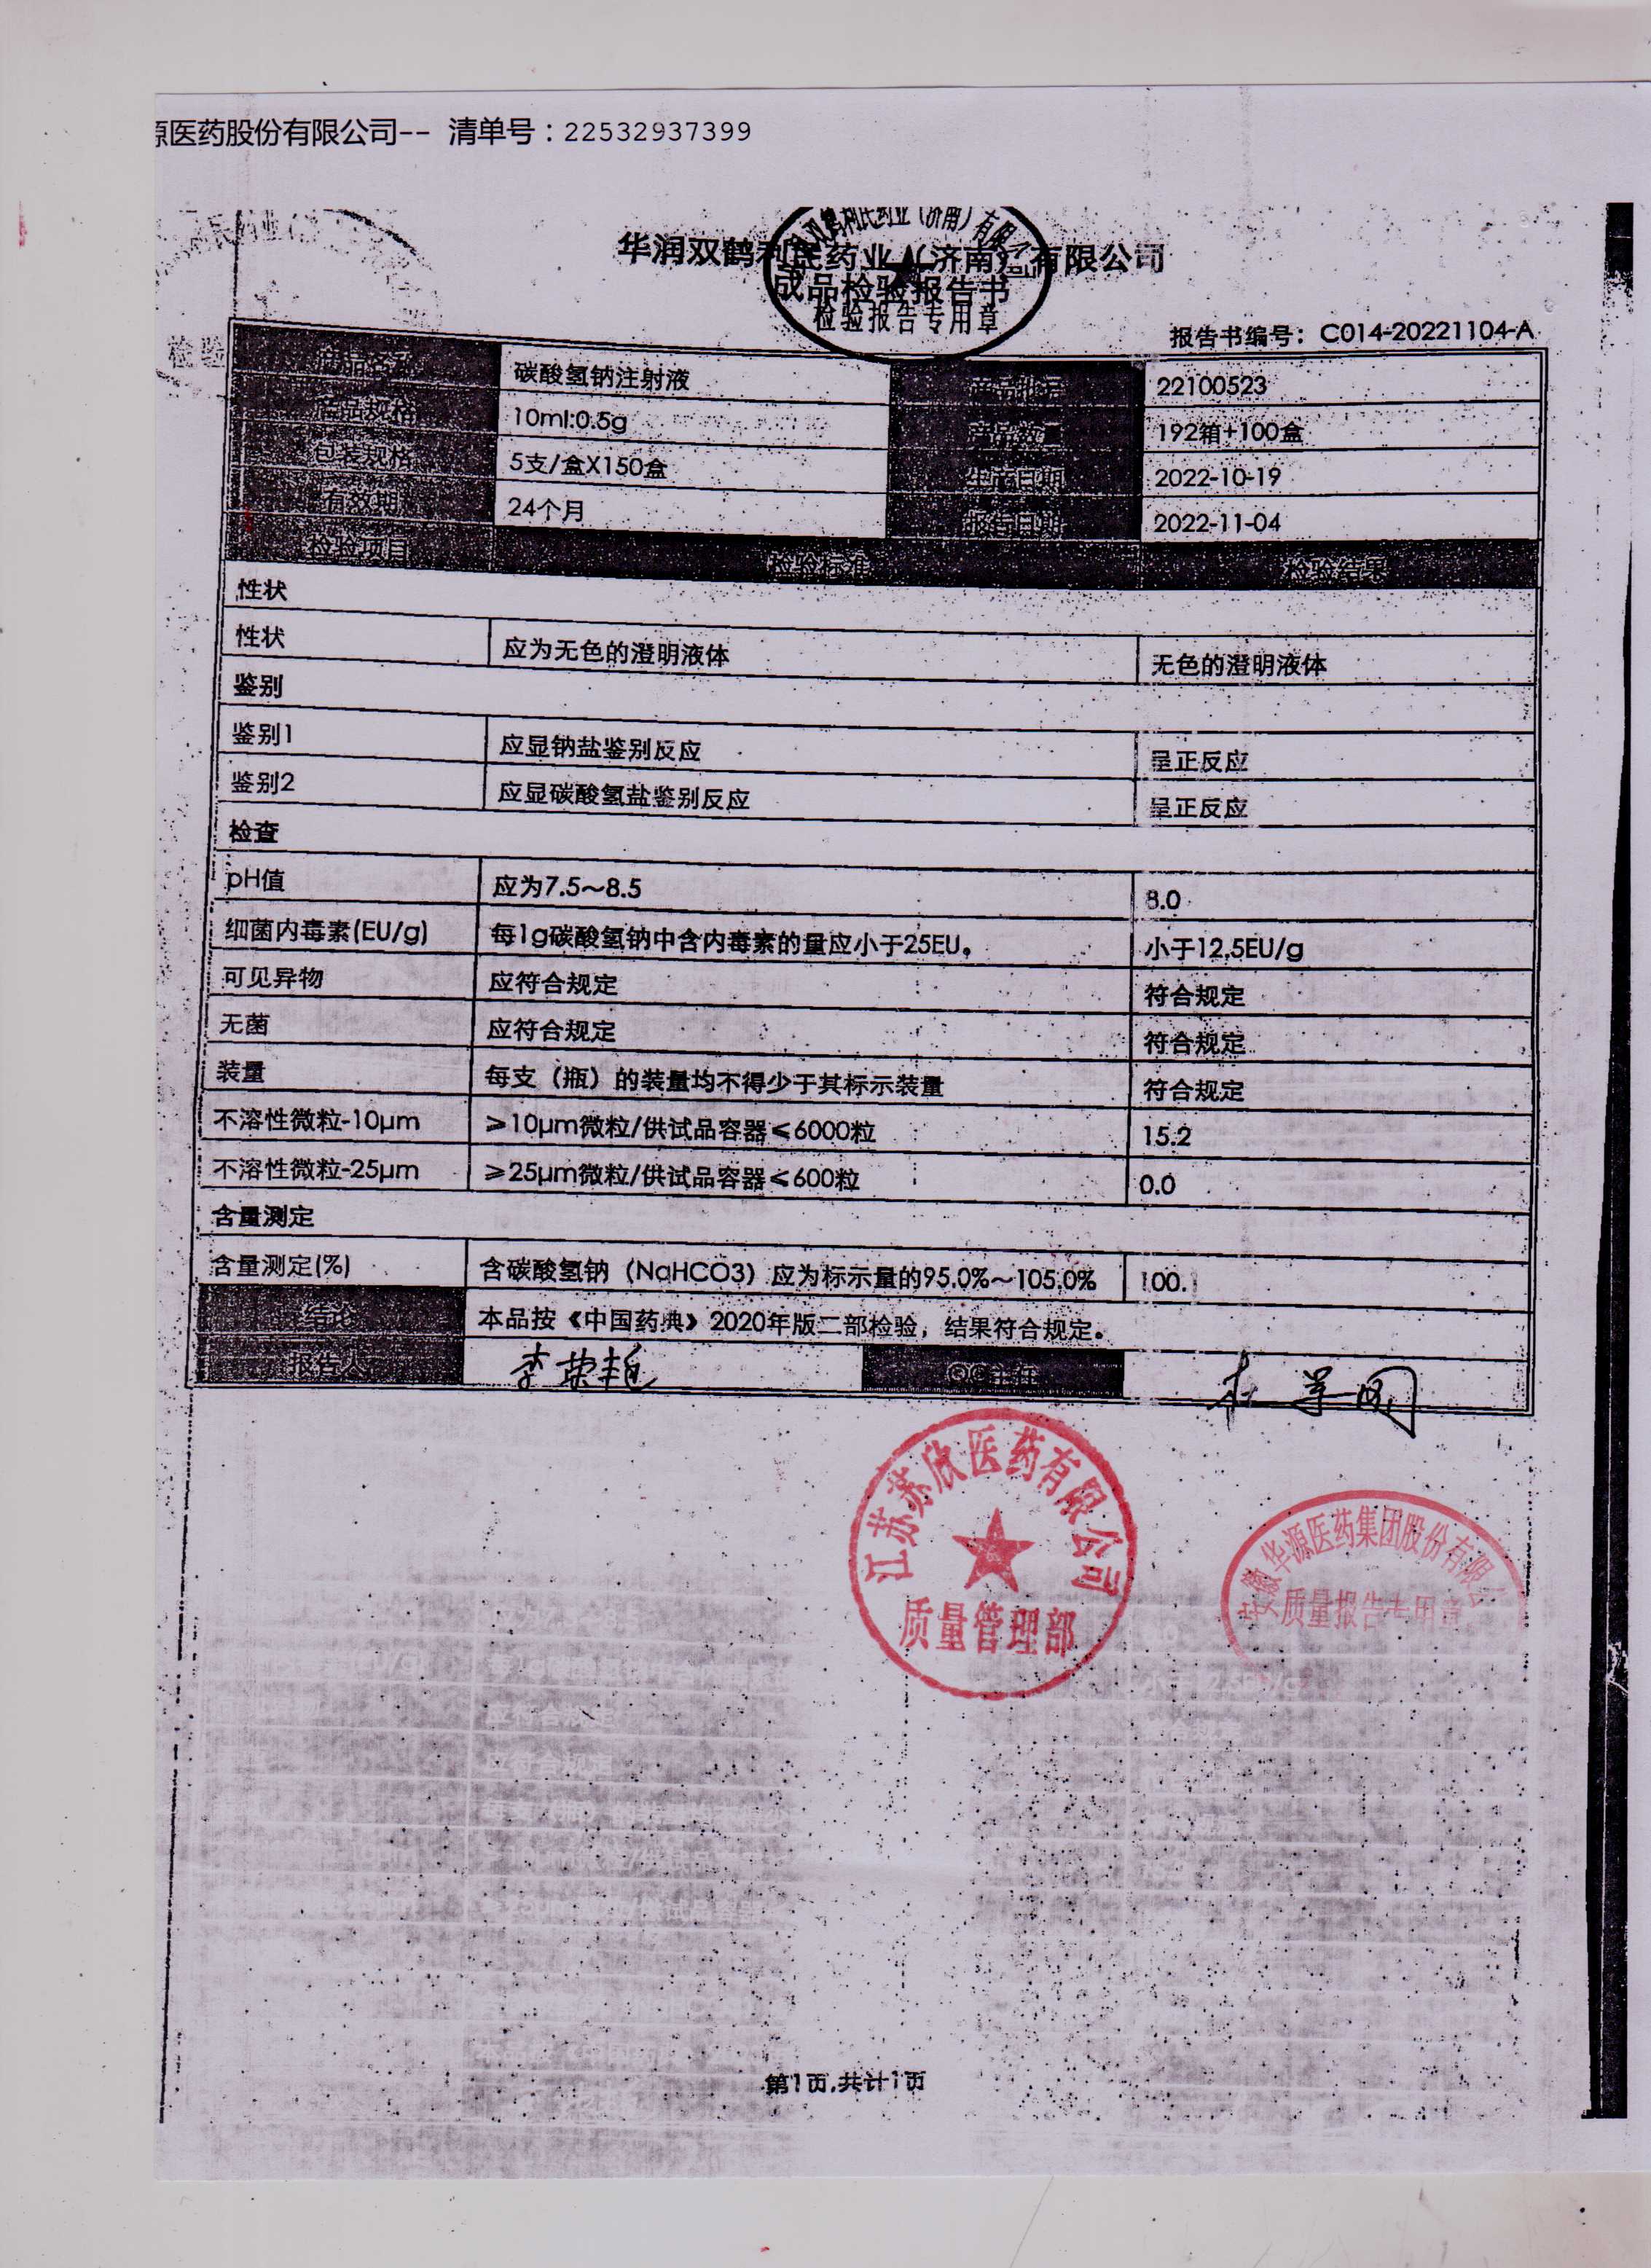 源医药股份有限公司-- 清单号：22532937399
华润双鹤利民药业（济南）有限公司
成品检验报告书
检验报告专用章
报告书编号：C014-20221104-A
产品名称 碳酸氢钠注射液 产品批号 22100523
产品规格 10ml:0.5g 产品数量 192箱+100盒
包装规格 5支/盒X150盒 生产日期 2022-10-19
有效期 24个月 报告日期 2022-11-04
检验项目 检验标准 检验结果
性状
性状 应为无色的澄明液体 无色的澄明液体
鉴别
鉴别1 应显钠盐鉴别反应 呈正反应
鉴别2 应显碳酸氢盐鉴别反应 呈正反应
检查
pH值 应为7.5～8.5 8.0
细菌内毒素(EU/g) 每1g碳酸氢钠中含内毒素的量应小于25EU。 小于12.5EU/g
可见异物 应符合规定 符合规定
无菌 应符合规定 符合规定
装量 每支（瓶）的装量均不得少于其标示装量 符合规定
不溶性微粒-10μm ≥10μm微粒/供试品容器≤6000粒 15.2
不溶性微粒-25μm ≥25μm微粒/供试品容器≤600粒 0.0
含量测定
含量测定(%) 含碳酸氢钠（NaHCO3）应为标示量的95.0%～105.0% 100.1
结论 本品按《中国药典》2020年版二部检验，结果符合规定。
报告人 QC主任
江苏苏欣医药有限公司
质量管理部
安徽华源医药集团股份有限公
质量报告专用章
第1页,共计1页